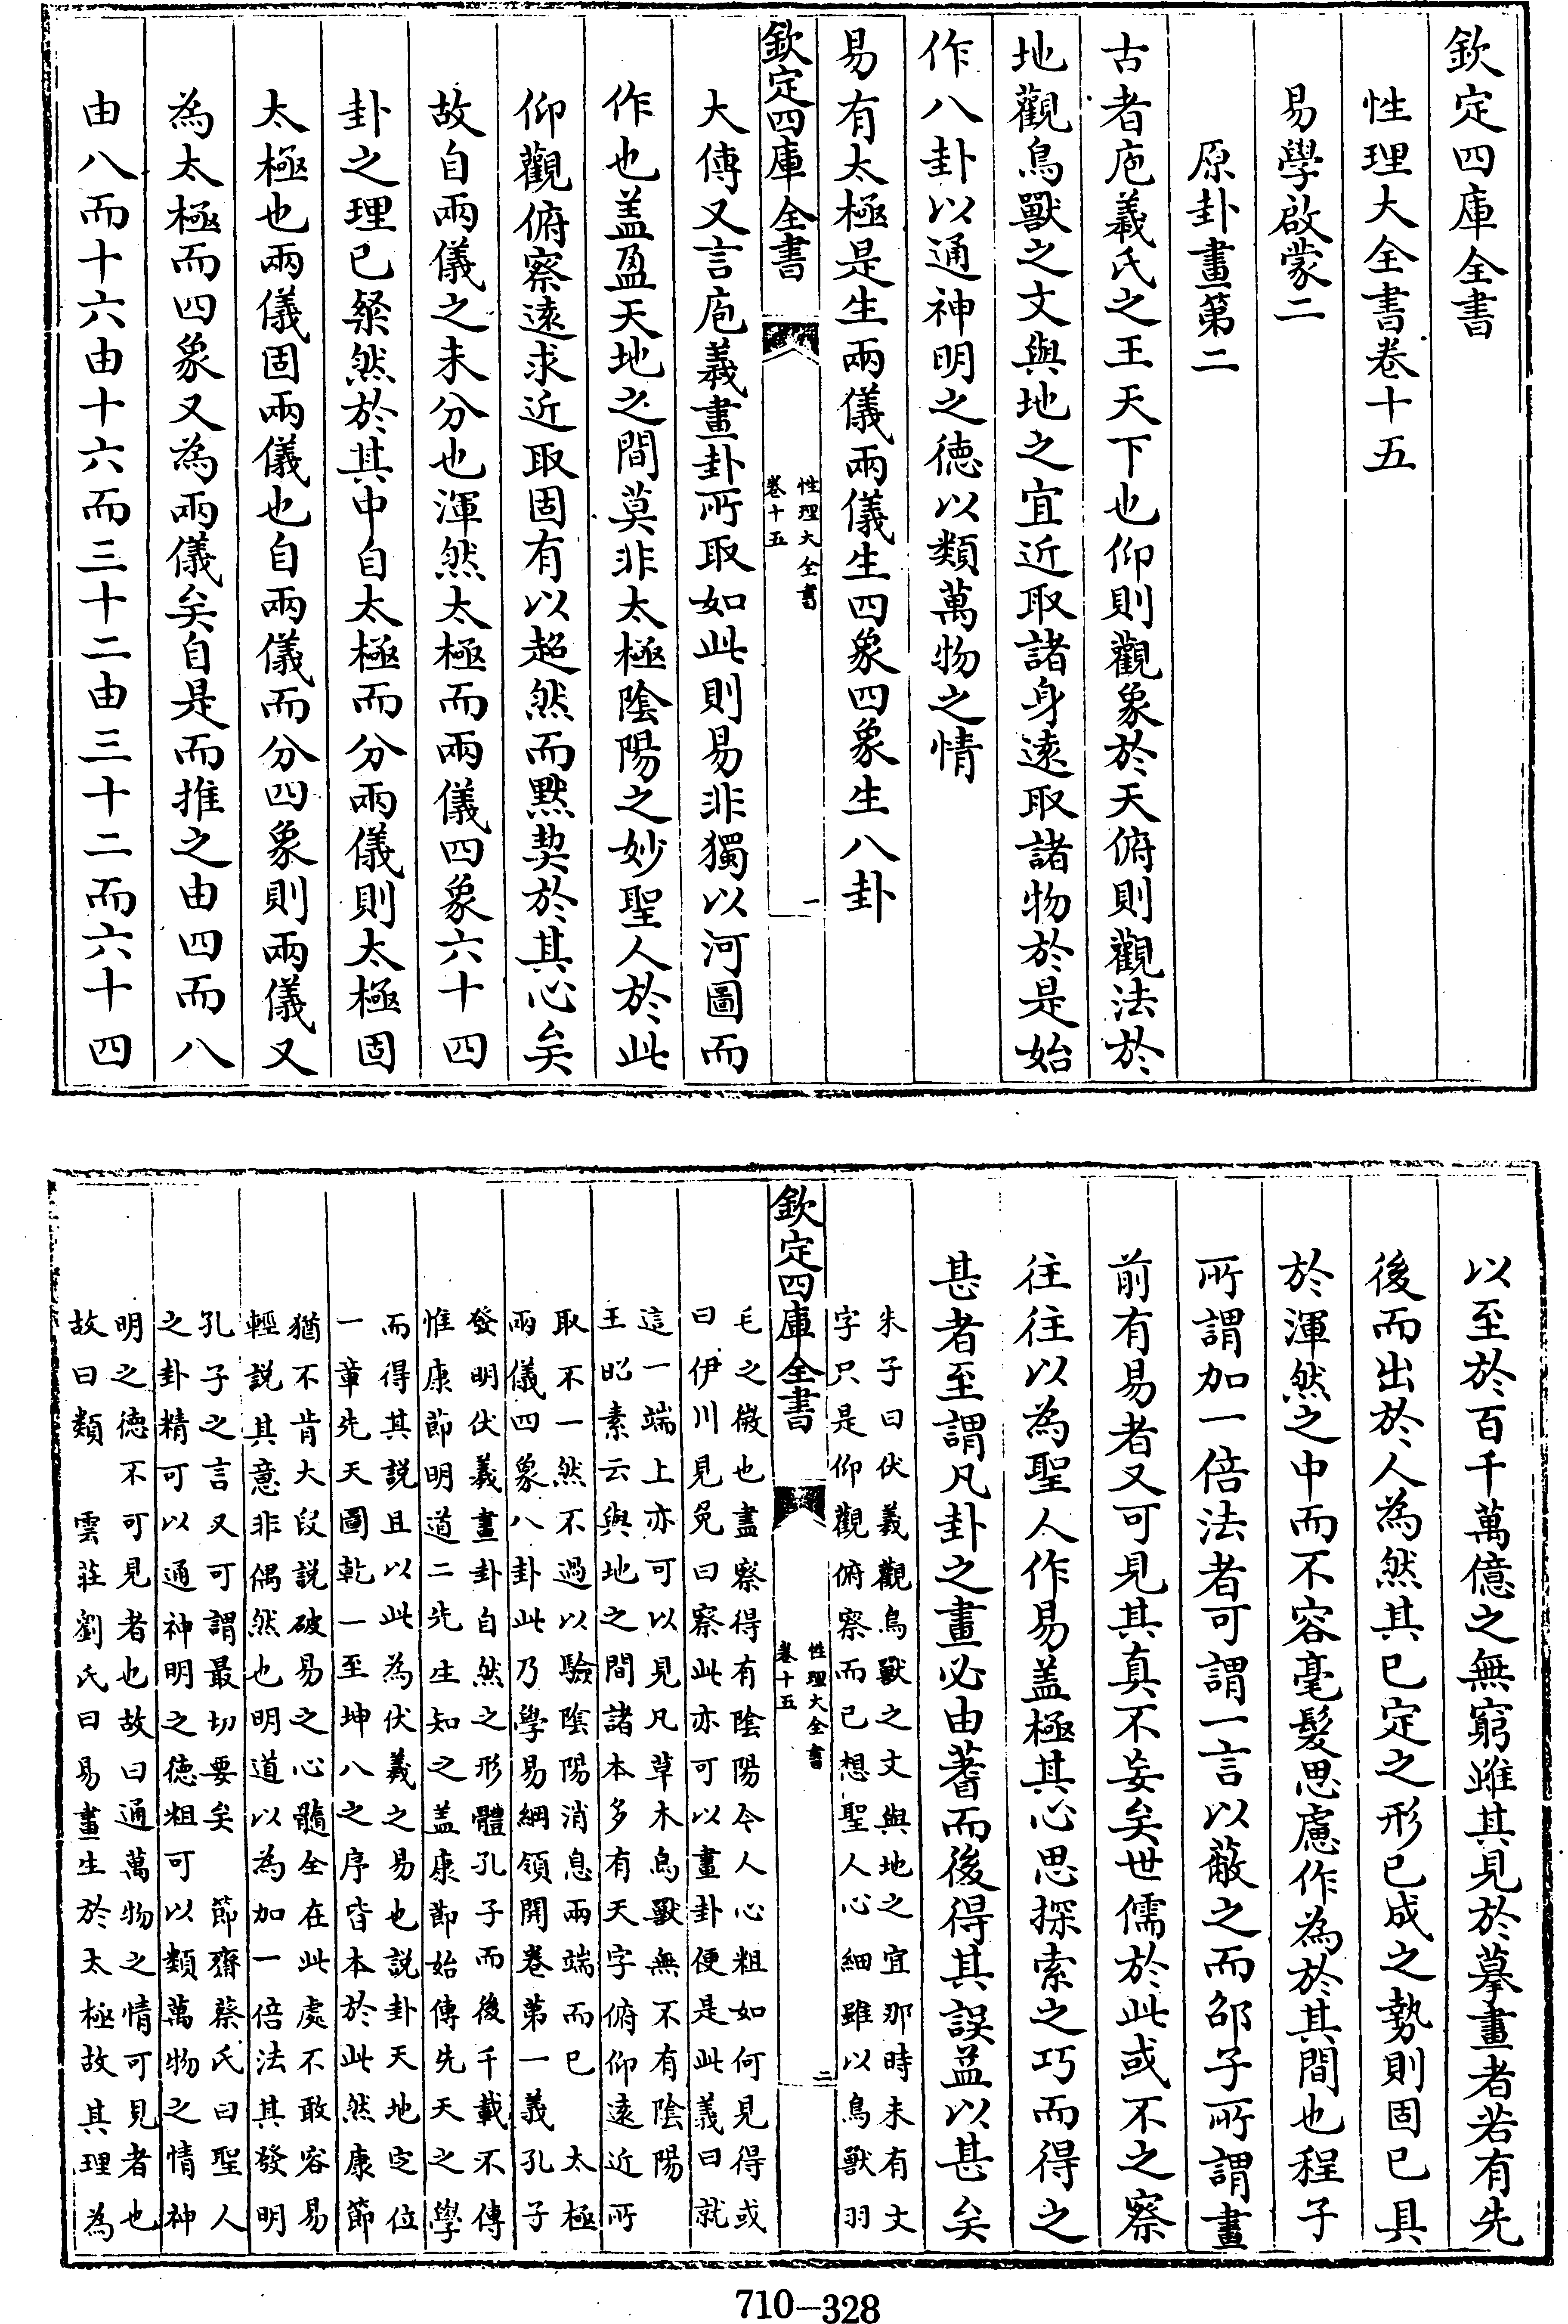 欽定四庫全書
性理大全書卷十五
易學啟蒙二
原卦畫第二
古者庖羲氏之王天下也仰則觀象於天俯則觀法於
地觀鳥獸之文與地之宜近取諸身遠取諸物於是始
作八卦以通神明之德以類萬物之情
易有太極是生兩儀兩儀生四象四象生八卦
欽定四庫全書
性理大全書
卷十五
一
大傳又言庖羲畫卦所取如此則易非獨以河圖而
作也盖盈天地之間莫非太極陰陽之妙聖人於此
仰觀俯察遠求近取固有以超然而黙契於其心矣
故自兩儀之未分也渾然太極而兩儀四象六十四
卦之理已粲然於其中自太極而分兩儀則太極固
太極也兩儀固兩儀也自兩儀而分四象則兩儀又
為太極而四象又為兩儀矣自是而推之由四而八
由八而十六由十六而三十二由三十二而六十四
以至於百千萬億之無窮雖其見於摹畫者若有先
後而出於人為然其已定之形已成之勢則固已具
於渾然之中而不容毫髮思慮作為於其間也程子
所謂加一倍法者可謂一言以蔽之而邵子所謂畫
前有易者又可見其真不妄矣世儒於此或不之察
往往以為聖人作易盖極其心思探索之巧而得之
甚者至謂凡卦之畫必由蓍而後得其誤益以甚矣
朱子曰伏羲觀鳥獸之文與地之宜那時未有文
字只是仰觀俯察而已想聖人心細雖以鳥獸羽
欽定四庫全書
性理大全書
卷十五
二
毛之微也盡察得有陰陽今人心粗如何見得或
曰伊川見兔曰察此亦可以畫卦便是此義曰就
這一端上亦可以見凡草木鳥獸無不有陰陽
王昭素云與地之間諸本多有天字俯仰遠近所
取不一然不過以驗陰陽消息兩端而已 太極
兩儀四象八卦此乃學易綱領開卷第一義孔子
發明伏羲畫卦自然之形體孔子而後千載不傳
惟康節明道二先生知之盖康節始傳先天之學
而得其說且以此為伏羲之易也說卦天地定位
一章先天圖乾一至坤八之序皆本於此然康節
猶不肯大段說破易之心髓全在此處不敢容易
輕說其意非偶然也明道以為加一倍法其發明
孔子之言又可謂最切要矣 節齋蔡氏曰聖人
之卦精可以通神明之德粗可以類萬物之情神
明之德不可見者也故曰通萬物之情可見者也
故曰類 雲莊劉氏曰易畫生於太極故其理為
710-328